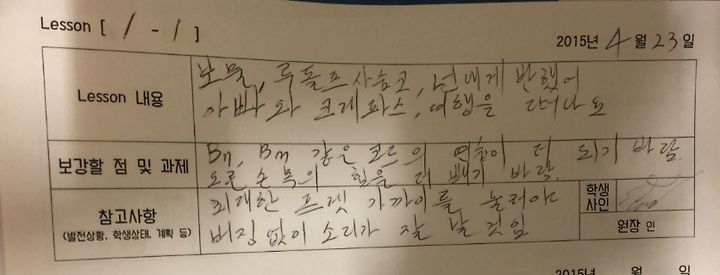 Lesson [ 1 - 1 ]
2015년 4 월 23 일
Lesson 내용
보물, 루돌프사슴코, 넌내게 반했어
아빠와 크레파스, 여행을 떠나요
보강할 점 및 과제
B7, Bm 같은 코드의 연습이 더 되기 바람.
오른손목의 힘을 더 빼기 바람.
참고사항
(발전상황, 학생상태, 계획 등)
최대한 프렛 가까이를 눌러야
버징없이 소리가 잘 날 것임
학생
사인
원장 인
2015년 월 일